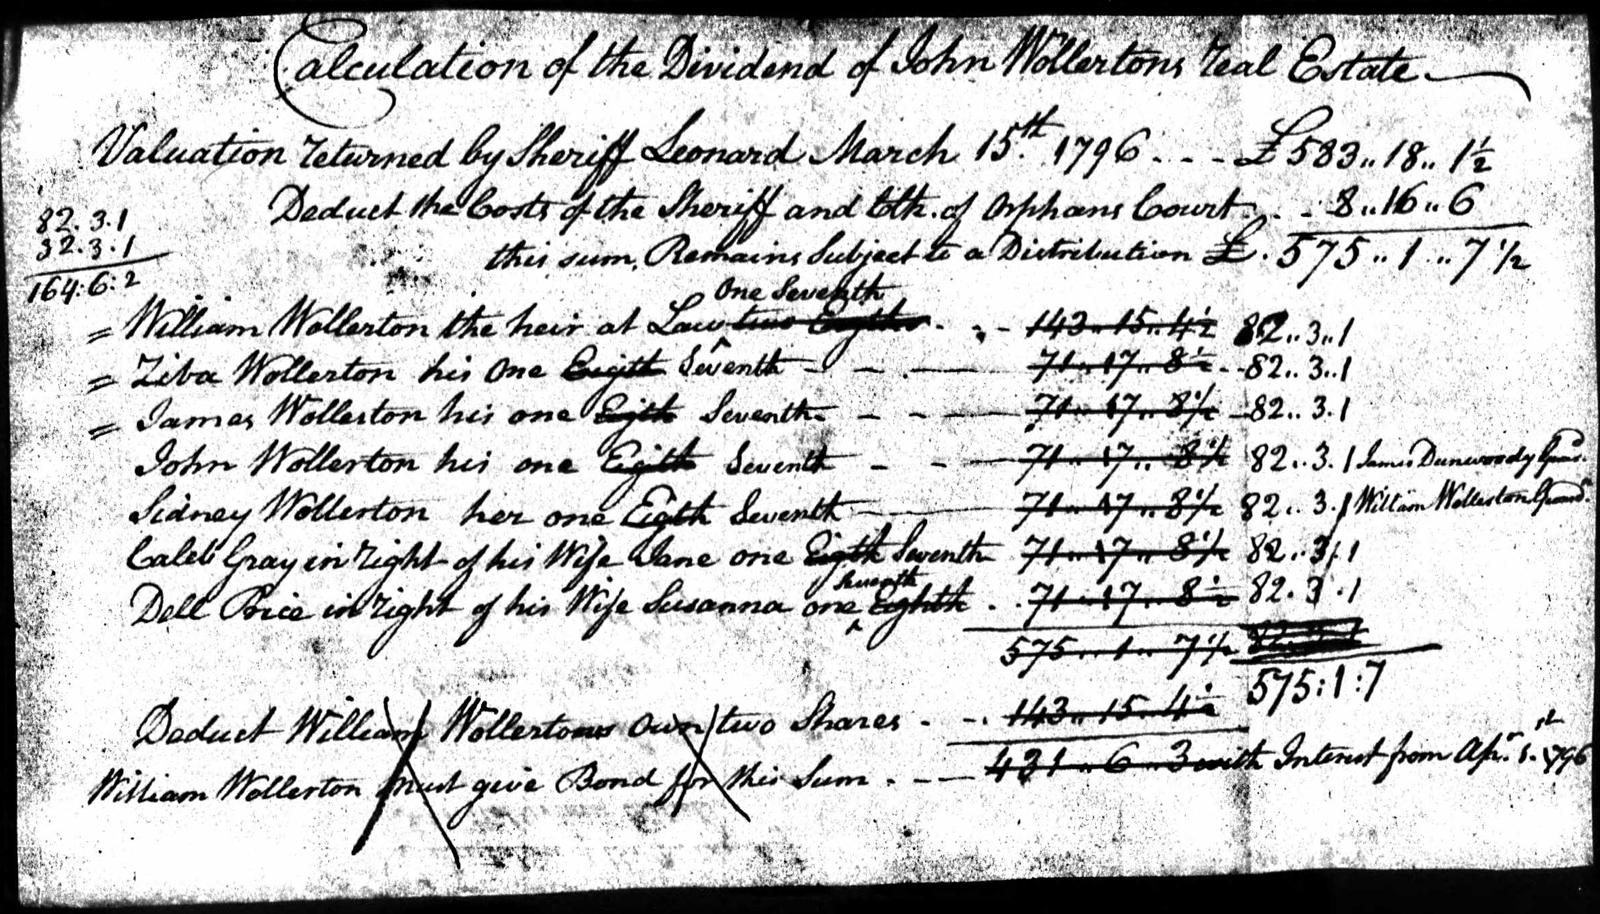 Calculation of the Dividend of John Wollertons real Estate
Valuation returned by Sheriff Leonard March 15th. 1796 - - - £583,, 18,, 1½
Deduct the Costs of the Sheriff and Clk. of Orphans Court - - 8,, 16,, 6
this sum, Remains Subject to a Distribution £. 575,, 1,, 7½
82. 3. 1
32. 3. 1
164: 6: 2
One Seventh
= William Wollerton the heir at Law two Eigths - - - 143,, 15,, 4½ 82,, 3,, 1
= Ziba Wollerton his One Eigth Seventh - - - 71,, 17,, 8½ - - 82,, 3,, 1
= James Wollerton his one Eigth Seventh - - - 71,, 17,, 8½ - 82,, 3. 1
John Wollerton his one Eigth Seventh - - - 71,, 17,, 8½ 82,, 3. 1 James Dunwoody Guard.
Sidney Wollerton her one Eigth Seventh - - - 71,, 17,, 8½ 82,, 3. 1 William Wollerton Guard.
Caleb Gray in right of his Wife Jane one Eigth Seventh 71,, 17,, 8½ 82,, 3. 1
Seventh
Dell Price in right of his Wife Susanna one ^ Eighth . . 71,, 17,, 8½ 82. 3. 1
575,, 1,, 7½
575: 1: 7
Deduct William Wollertons Own two Shares - - - 143,, 15. 4½
William Wollerton must give Bond for this Sum - - - 431,, 6,, 3 with Interest from Apr. 1st. 1796